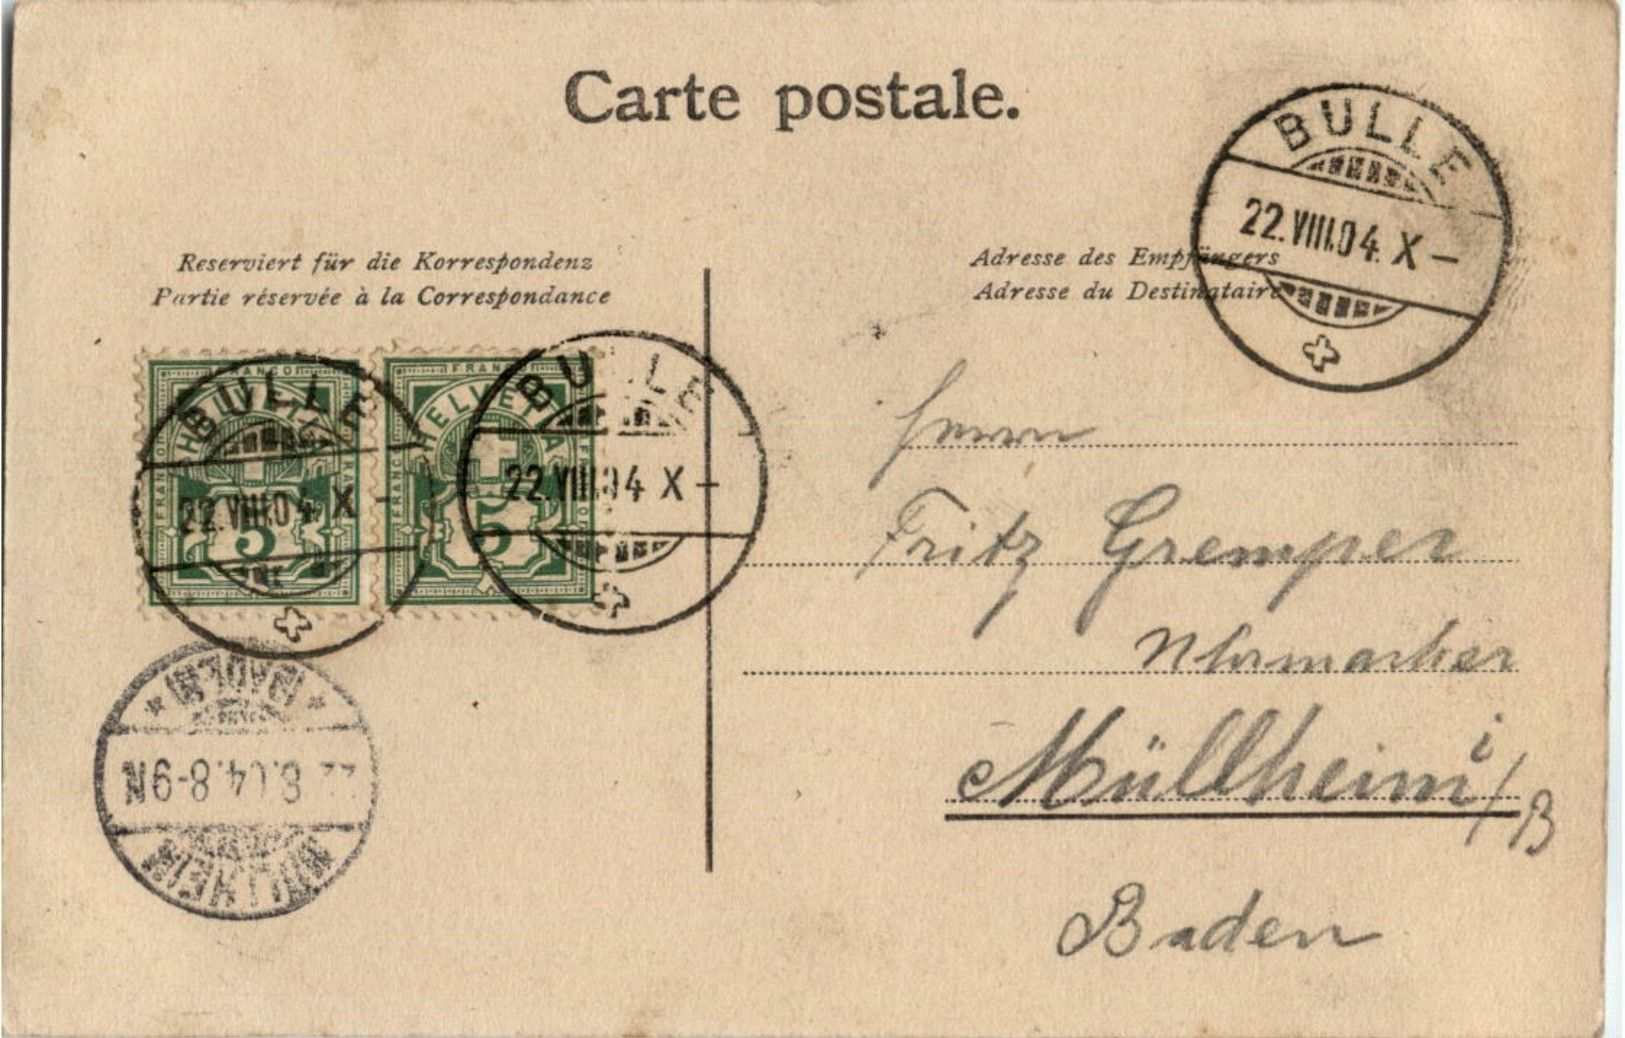 Carte postale.
BULLE
22.VIII.04. X-
Reserviert für die Korrespondenz
Partie réservée à la Correspondance
Adresse des Empfängers
Adresse du Destinataire
FRANCO
HELVETIA
5
BULLE
22.VIII.04. X-
FRANCO
HELVETIA
FRANCO
5
BULLE
22.VIII.04 X-
Herrn
Fritz Gremper
Uhrmacher
Müllheim i/B
Baden
MÜLLHEIM
22.8.04.8-9N
(BADEN)